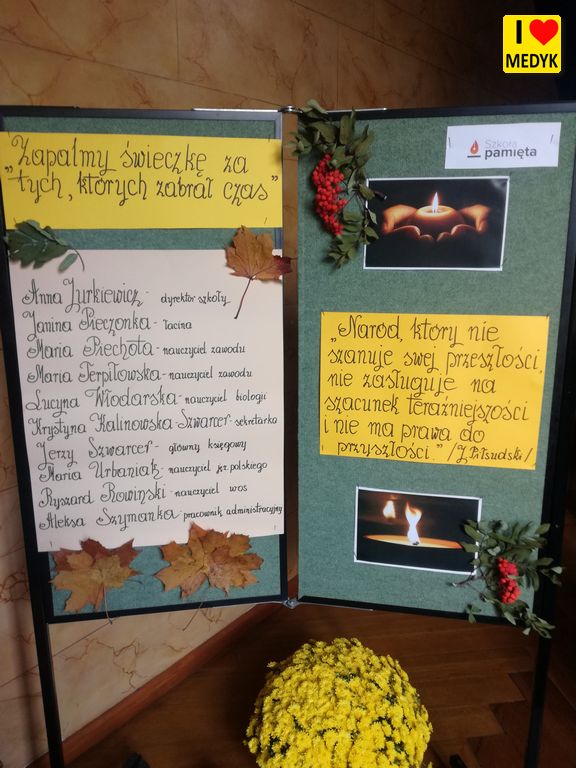 I ❤ MEDYK
„Zapalmy świeczkę za
tych, których zabrał czas"
Anna Jurkiewicz - dyrektor szkoły
Janina Pieczonka - łacina
Maria Piechota - nauczyciel zawodu
Maria Terpiłowska - nauczyciel zawodu
Lucyna Włodarska - nauczyciel biologii
Krystyna Kalinowska-Szwarcer - sekretarka
Jerzy Szwarcer - główny księgowy
Maria Urbaniak - nauczyciel jęz. polskiego
Ryszard Rowiński - nauczyciel wos
Aleksa Szymanka - pracownik administracyjny
Szkoła
pamięta
„Naród, który nie
szanuje swej przeszłości,
nie zasługuje na
szacunek teraźniejszości
i nie ma prawa do
przyszłości." /J. Piłsudski/